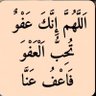 اَللَّهُمَّ إِنَّكَ عَفُوٌّ
تُحِبُّ الْعَفْوَ
فَاعْفُ عَنَّا